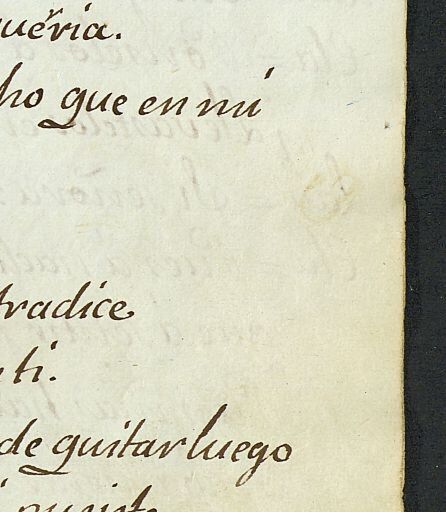 ueria.
ho que en mi
tradice
ti.
de quitar luego